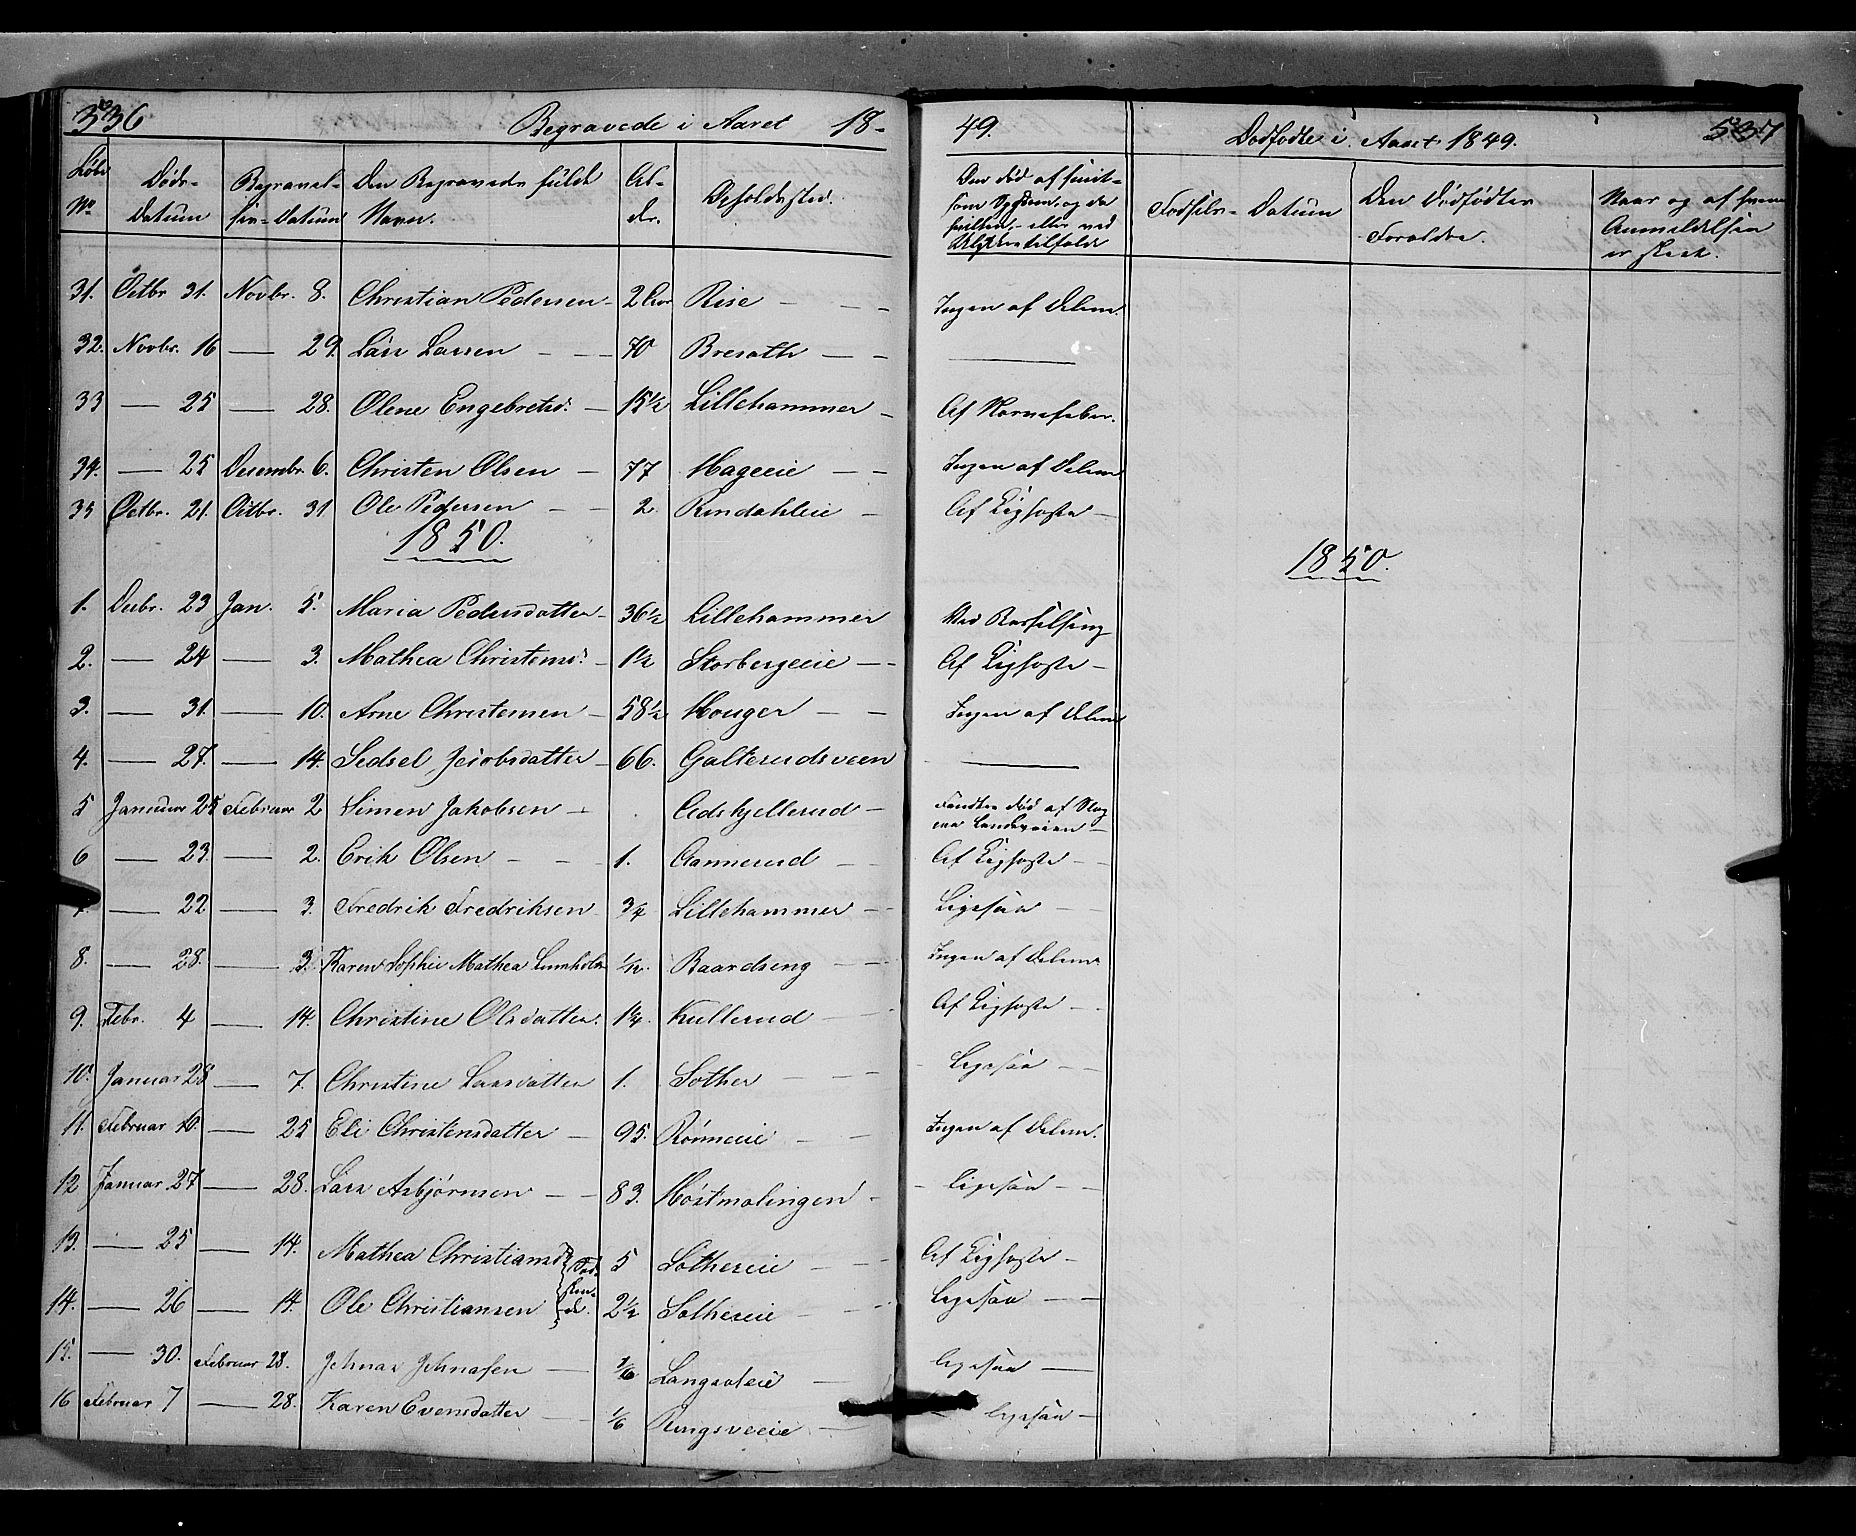 536
Begravede i Aaret 18-
49.
Dødfødte i Aaret 1849.
537
Løbe No.
Døds-Datum
Begravelses-Datum
Den Begravede fulde Navn.
Alder.
Opholdssted.
Om død af smitsom Sygdom, og da hvilken, - eller ved Ulykkestilfælde
Fødsels-Datum
Den Dødfødtes Forældre.
Naar og af hvem Anmeldelsen er skeet.
31. Octbr. 31. Novbr. 8. Christian Pedersen - 2 Rise - - Ingen af Delene.
32. Novbr. 16 — 29. Lars Larsen - - 70 Bresath - -
33 — 25 — 28. Olene Engebretsd: - 15½ Lillehammer - Af Nervefeber.
34. — 25 Decembr. 6. Christen Olsen - 77 Hageeie - - Ingen af Delene
35 Octbr. 21. Octbr. 31 Ole Pedersen - - 2. Rindahleie - Af Kighoste -
1850.
1850.
1. Decbr. 23 Jan. 5. Maria Pedersdatter - 36½ Lillehammer Ved Barselseng
2. — 24 — 3. Mathea Christensd: - 1½ Storbergeeie - - Af Kighoste -
3. — 31. — 10. Arne Christensen - 58½ Houger - - Ingen af Delene
4. — 27. — 14. Sidsel Jacobsdatter - 66. Galterudsveen —
5 Januar 25 Februar 2 Simen Jakobsen - Aadskjellerud - Fundten død af Slag paa Landeveien -
6 — 23. — 2. Erik Olsen - - 1. Aannerud - - Af Kighoste - -
7. — 22 — 3. Fredrik Fredriksen - ¾ Lillehammer - - Ligesaa -
8. — 28. — 3. Karen Sophie Mathea 1/12. Baardseng - - Ingen af Delene
9. Febr. 4 — 14. Christine Olsdatter. 1¼. Kullerud - - Af Kighoste - -
10. Januar 28 — 7. Christine Larsdatter 1. Sother - - - Ligesaa - -
11. Februar 10. — 25 Eli Christensdatter - 95. Rønneeie - - Ingen af Delene.
12 Januar 27 — 28. Lars Asbjørnsen - - 83. Høistmælingen - - Ligesaa - -
13. — 25 — 14. Mathea Christiansd: 5 Sothereie - - Af Kighoste -
Sødskende.
14. — 26 — 14. Ole Christiansen 2½ Sothereie - - Ligesaa - -
15. — 30. Februar 28. Johnas Johnasen — 1/6 Langsæteie - Ligesaa —
16 Februar 7 — 28. Karen Evensdatter - 1/6 Ringsveeie - - Ligesaa -